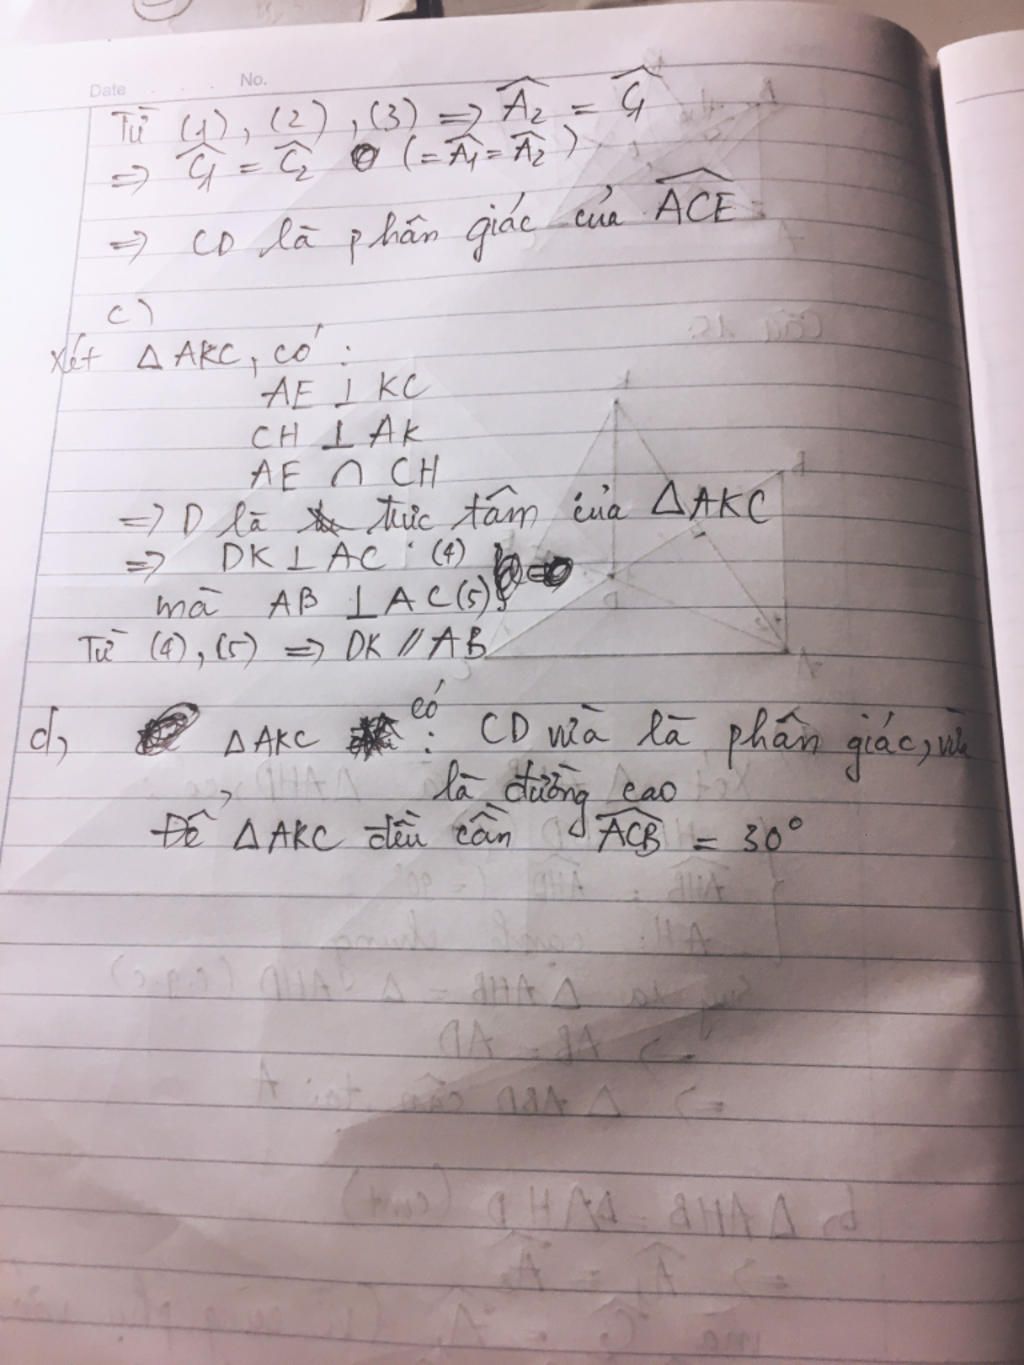 Date . . . No.
Từ (1), (2), (3) => Â₂ = Ĉ₁
=> Ĉ₁ = Ĉ₂ (= Â₁ = Â₂)
=> CD là phân giác của ACE
c)
Xét △AKC, có :
AE ⊥ KC
CH ⊥ AK
AE ∩ CH
=> D là trực tâm của △AKC
=> DK ⊥ AC (4)
mà AB ⊥ AC (5)
Từ (4), (5) => DK // AB
d, △AKC có : CD vừa là phân giác, vừa
là đường cao
Để △AKC đều cần ACB = 30°